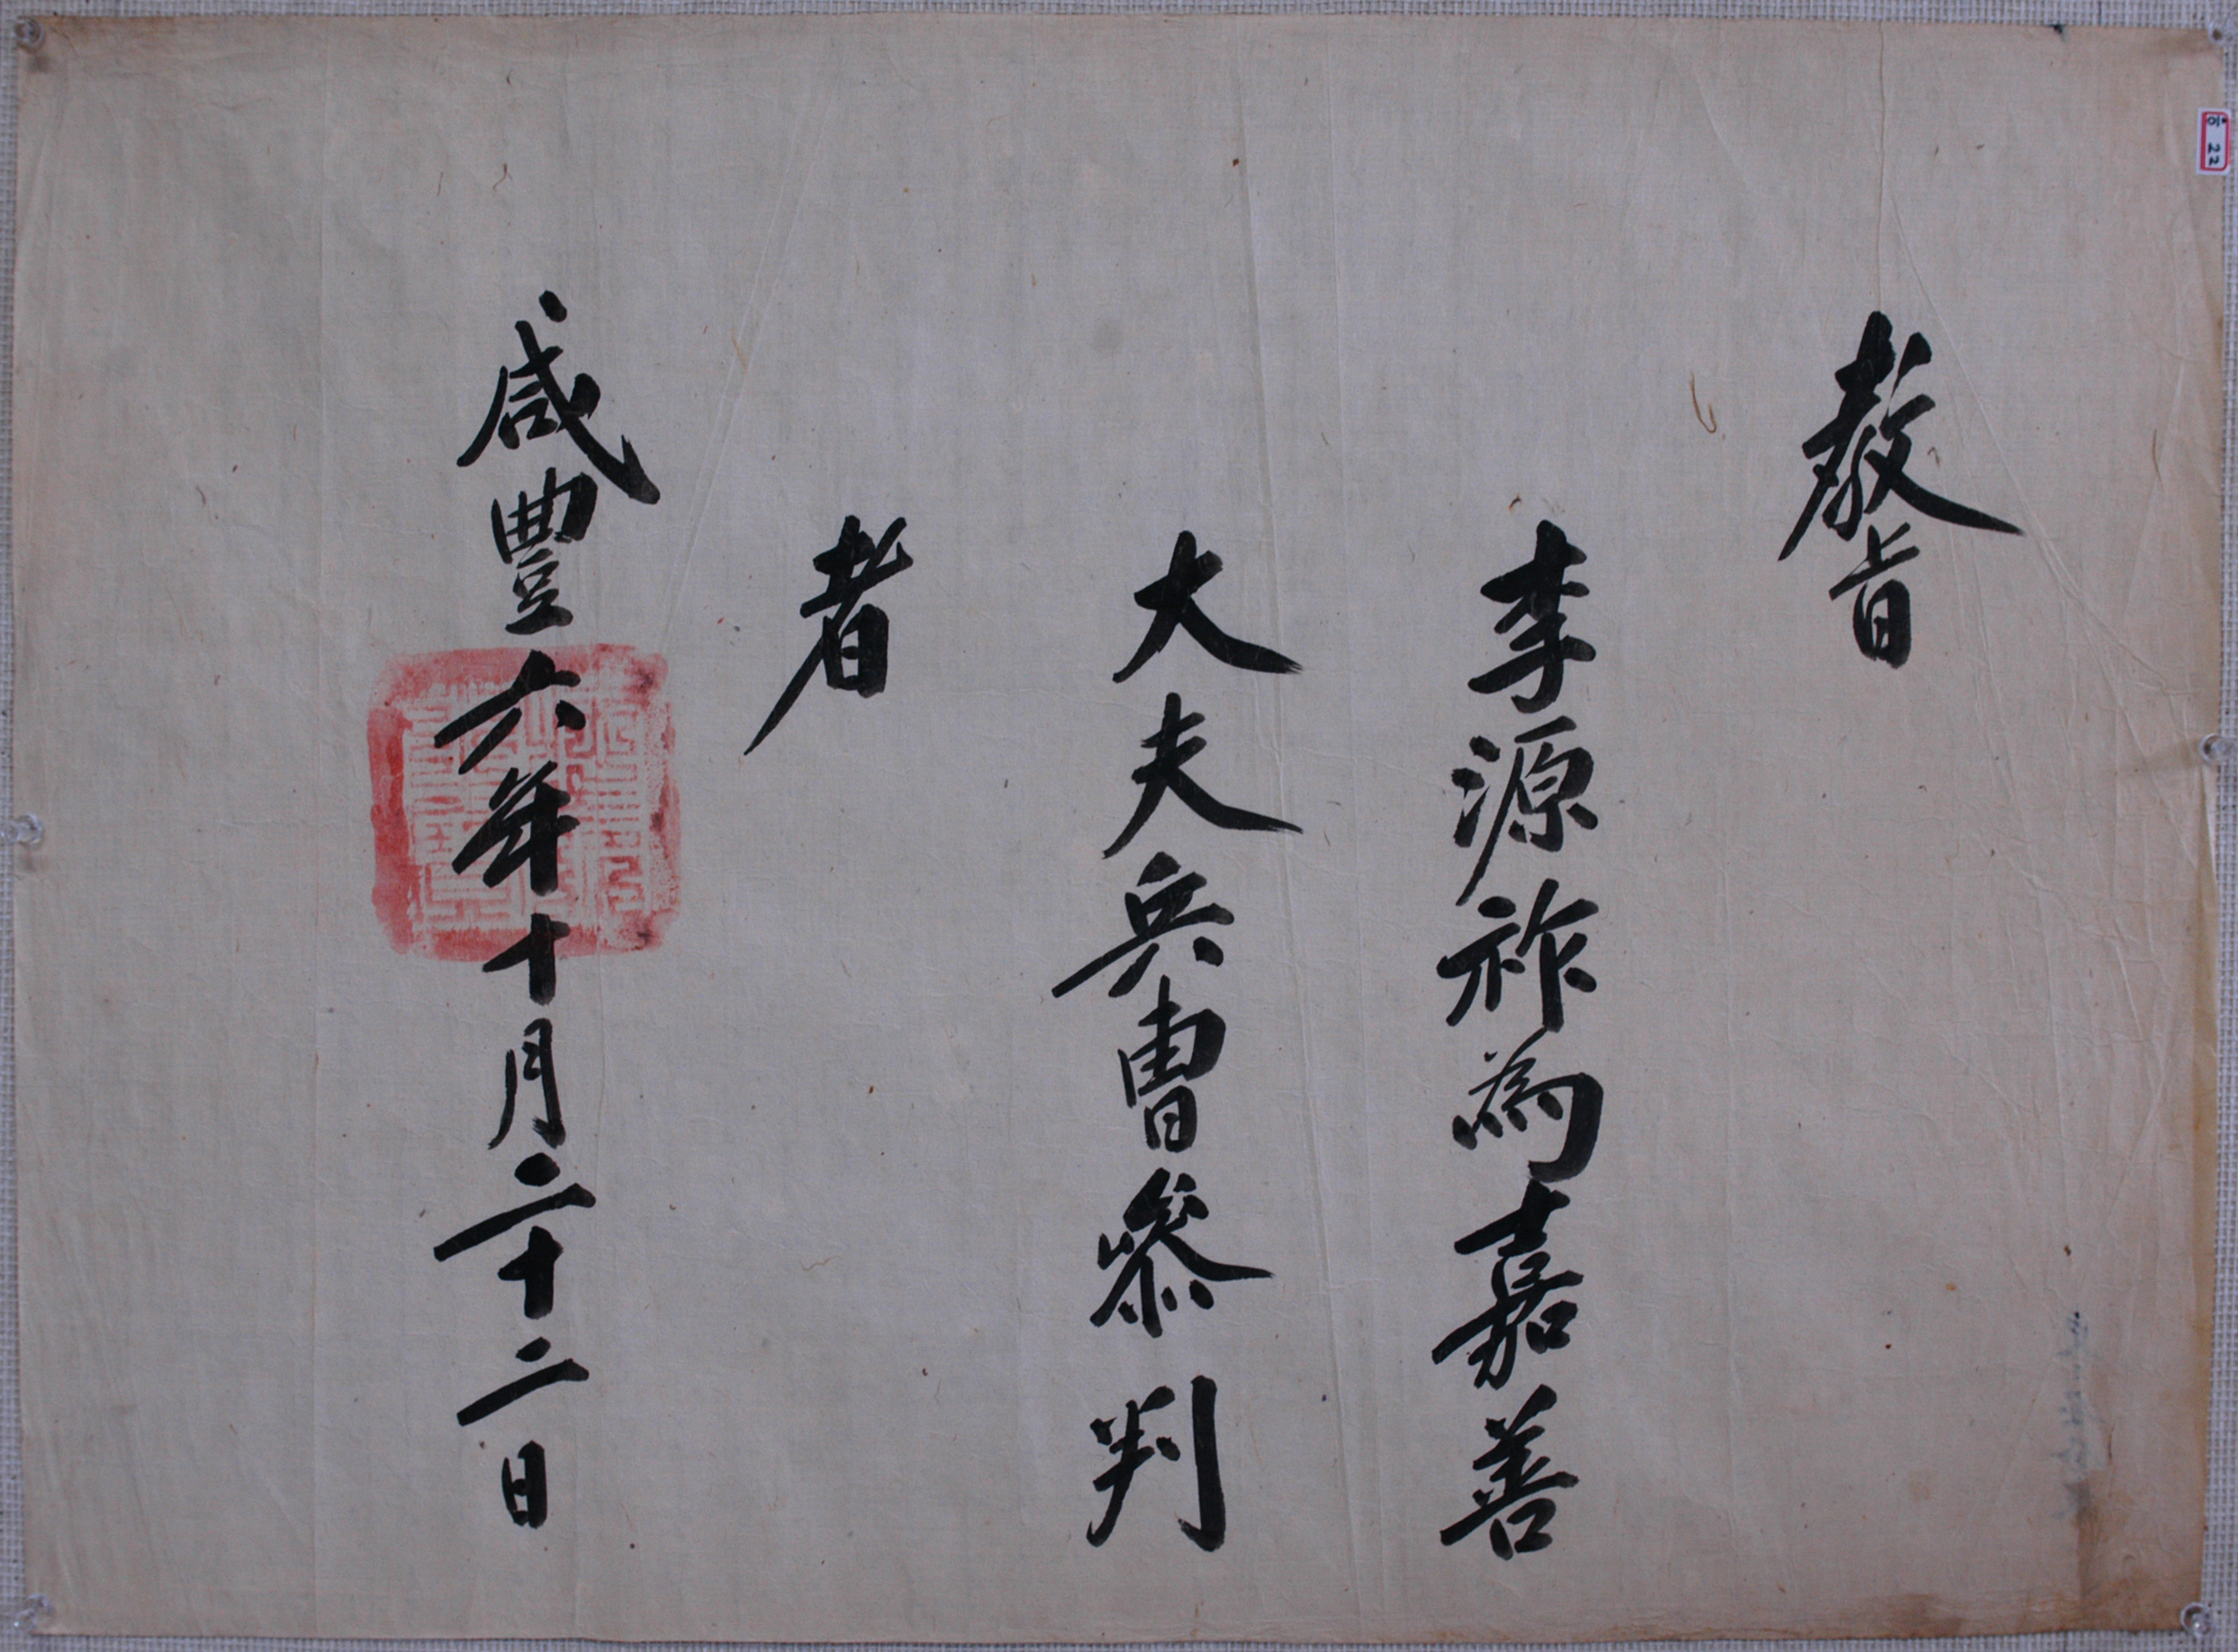 敎旨
李源祚為嘉善
大夫兵曹參判
者
咸豐六年十月二十二日
22